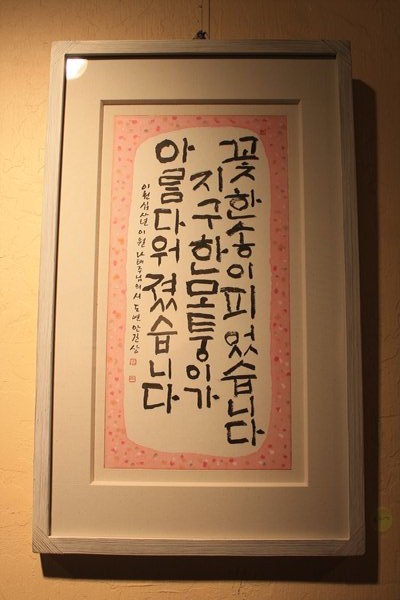 꽃한송이피었습니다
지구한모퉁이가
아름다워졌습니다
이천십사년이월 나태주님의시